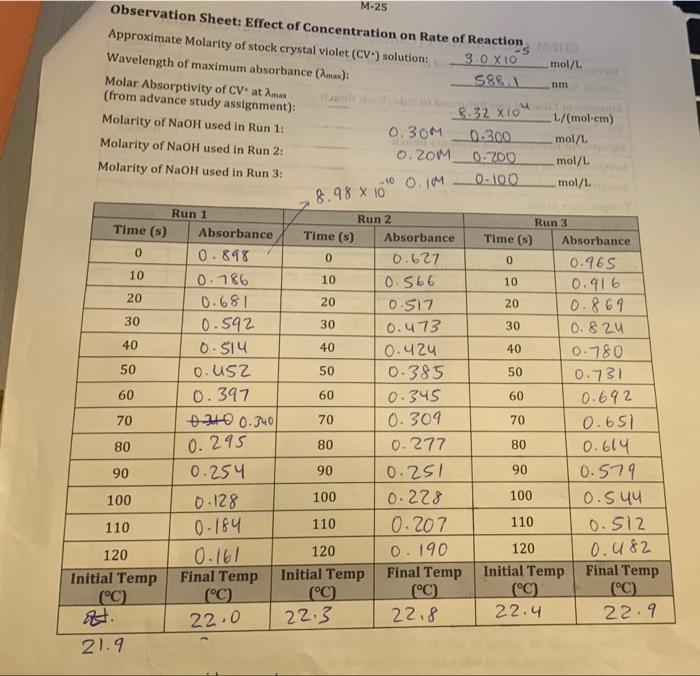 M-25
Observation Sheet: Effect of Concentration on Rate of Reaction
Approximate Molarity of stock crystal violet (CV⁺) solution: 3.0 X10⁻⁵ mol/L
Wavelength of maximum absorbance (λmax): 588.1 nm
Molar Absorptivity of CV⁺ at λmax
(from advance study assignment): 8.32 X10⁴ L/(mol·cm)
Molarity of NaOH used in Run 1: 0.30M 0.300 mol/L
Molarity of NaOH used in Run 2: 0.20M 0.200 mol/L
Molarity of NaOH used in Run 3: 0.1M 0.100 mol/L
8.98 X 10⁻¹⁰
Run 1 Run 2 Run 3
Time (s) Absorbance Time (s) Absorbance Time (s) Absorbance
0 0.898 0 0.627 0 0.965
10 0.786 10 0.566 10 0.916
20 0.681 20 0.517 20 0.869
30 0.592 30 0.473 30 0.824
40 0.514 40 0.424 40 0.780
50 0.452 50 0.385 50 0.731
60 0.397 60 0.345 60 0.692
70 0.340 70 0.309 70 0.651
80 0.295 80 0.277 80 0.614
90 0.254 90 0.251 90 0.579
100 0.128 100 0.228 100 0.544
110 0.184 110 0.207 110 0.512
120 0.161 120 0.190 120 0.482
Initial Temp Final Temp Initial Temp Final Temp Initial Temp Final Temp
(°C) (°C) (°C) (°C) (°C) (°C)
22.0 22.3 22.8 22.4 22.9
21.9